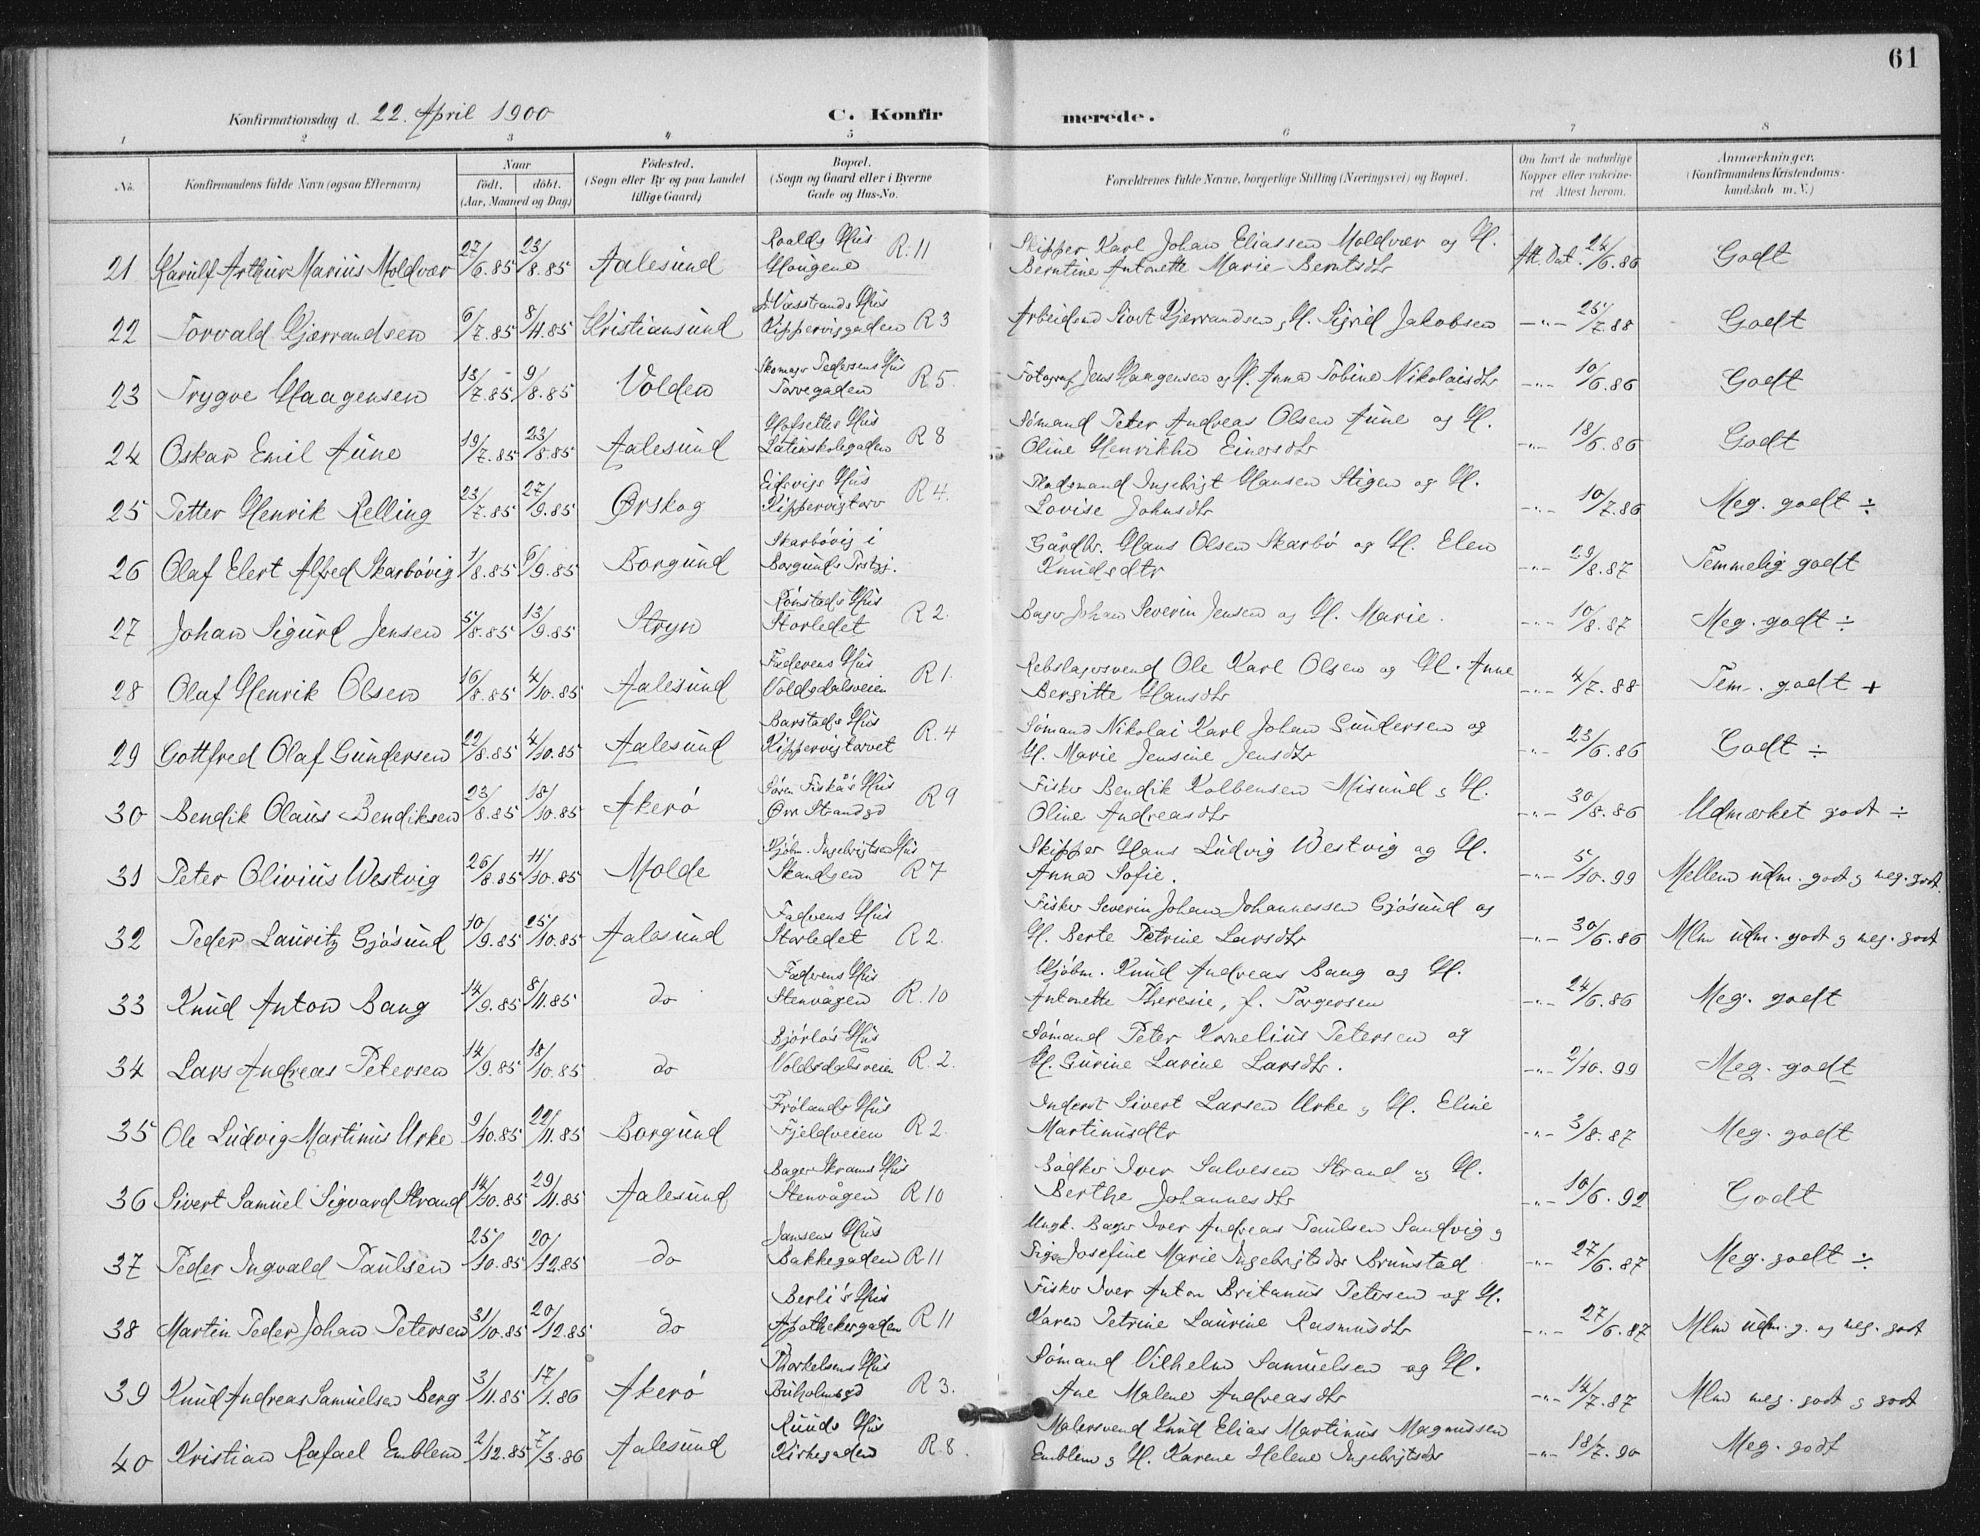 61
Konfirmationsdag d. 22. April 1900
C. Konfirmerede.
1 2 3 4 5 6 7 8
No. Konfirmandens fulde Navn (ogsaa Efternavn) Naar født, døbt. (Aar, Maaned og Dag) Fødested. (Sogn eller By og paa Landet tillige Gaard) Bopæl. (Sogn og Gaard eller i Byerne Gade og Hus-No. Forældrenes fulde Navne, borgerlige Stilling (Næringsvei) og Bopæl. Om havt de naturlige Kopper eller vakcineret. Attest herom. Anmærkninger. (Konfirmandens Kristendomskundskab m. V.)
21 Karulf Arthur Marius Moldvær 27/6.85 23/8.85 Aalesund Roalds Hus Haugene R.11 Skipper Karl Johan Eliassen Moldvær og H. Berntine Antonette Marie Berntsdtr Att. Dat. 24/6.86 Godt
22 Torvald Gjerrandsen 6/7.85 8/11.85 Kristiansund Vasstrands Hus Kippervigsgaden R3 Arbeidsmd Sivert Gjerrandsen, H. Sigrid Jakobsen -"- 25/7.88 Godt
23 Trygve Haagensen 13/7.85 9/8.85 Volden Skomager Pedersens Hus Torvegaden R5. Fotograf Jens Haagensen og H. Anna Tobine Nikolaisdtr -"- 10/6.86 Godt
24 Oskar Emil Aune 19/7.85 23/8.85 Aalesund Hofsettes Hus Latinskolegaden R8 Sømand Peter Andreas Olsen Aune og H. Oline Henrikke Einersdtr -"- 18/6.86 Godt
25 Petter Henrik Relling 23/7.85 27/9.85 Ørskog Eidsvigs Hus Kippervigtorv R4. Pladsmand Ingebrigt Hansen Stigen og H. Lovise Johnsdtr -"- 10/7.86 Meg. godt ÷
26 Olaf Elert Alfred Skarbøvig 1/8.85 6/9.85 Borgund Skarbøvig i Borgunds Prstgj. Gårdbr. Hans Olsen Skarbø og H. Elen Knudsdtr -"- 29/8.87 Temmelig godt
27 Johan Sigurd Jensen 5/8.85 13/9.85 Stryn Rønstads Hus Storledet R2. Bager Johan Severin Jensen og H. Marie. -"- 10/8.87 Meg. godt ÷
28 Olaf Henrik Olsen 16/8.85 4/10.85 Aalesund Faderens Hus Voldsdalsveien R1. Rebslagersvend Ole Karl Olsen og H. Anne Bergitte Hansdtr -"- 4/7.88 Tem. godt +
29 Gottfred Olaf Gundersen 22/8.85 4/10.85 Aalesund Barstads Hus Kippervigtorvet R.4 Sømand Nikolai Karl Johan Gundersen og H. Marie Jensine Jensdtr -"- 23/6.86 Godt ÷
30 Bendik Olaus Bendiksen 23/8.85 18/10.85 Akerø Søren Fiskås Hus Øvre Strandgd R9 Fisker Bendik Kolbensen Misund og H. Oline Andreasdtr -"- 30/8.86 Udmærket godt ÷
31 Peter Olivius Westvig 26/8.85 11/10.85 Molde Kjøbm. Ingebrigtsen Hus Skandsen R7 Skipper Hans Ludvig Westvig og H. Anna Sofie. -"- 5/10.99 Mellem udm. godt og meg. godt.
32 Peder Lauritz Gjøsund 10/9.85 25/10.85 Aalesund Faderens Hus Storledet R2. Fisker Severin Johan Johannessen Gjøsund og H. Berte Petrine Larsdtr -"- 30/6.86 Mlm udm. godt og meg. godt
33 Knud Anton Bang 14/9.85 8/11.85 do Faderens Hus Stenvågen R.10 Kjøbm. Knud Andreas Bang og H. Antonette Theresie, f. Torgersen -"- 24/6.86 Meg. godt
34 Lars Andreas Petersen 14/9.85 18/10.85 do Bjørløs Hus Voldsdalsveien R.2. Sømand Peter Kornelius Petersen og H. Gurine Larine Larsdtr. -"- 2/10.99 Meg. godt
35 Ole Ludvig Martinus Urke 9/10.85 22/11.85 Borgund Frølands Hus Fjeldveien R2. Inderst Sivert Larsen Urke og H. Eline Martinusdtr -"- 3/8.87 Meg. godt
36 Sivert Samuel Sigvard Strand 14/10.85 29/11.85 Aalesund Bager Skrams Hus Stenvågen R10 Bødker Iver Salvesen Strand og H. Berthe Johannesdtr -"- 10/6.92 Godt
37 Peder Ingvald Paulsen 25/10.85 20/12.85 do Jansens Hus Bakkegaden R11 Ungk. Bager Iver Andreas Paulsen Sandvig og Pige Josefine Marie Ingebrigtsdtr Brunstad -"- 27/6.87 Meg. godt ÷
38 Martin Peder Johan Petersen 31/10.85 20/12.85 do Berli's Hus Apothekergaden R11 Fisker Iver Anton Britanus Petersen og H. Karen Petrine Laurine Rasmusdtr -"- 27/6.87 Mlm udm. g. og meg. godt
39 Knud Andreas Samuelsen Berg 3/11.85 17/1.86 Akerø Thorkelsens Hus Buholmsgd R3. Sømand Vilhelm Samuelsen og H. Ane Malene Andreasdtr -"- 14/7.87 Mlm meg. godt og godt
40 Kristian Rafael Emblem 2/12.85 7/3.86 Aalesund Ruuds Hus Kirkegaden R.8. Malersvend Knud Elias Martinus Magnussen Emblem og H. Karene Helene Ingebrigtsdtr -"- 18/7.90 Meg. godt